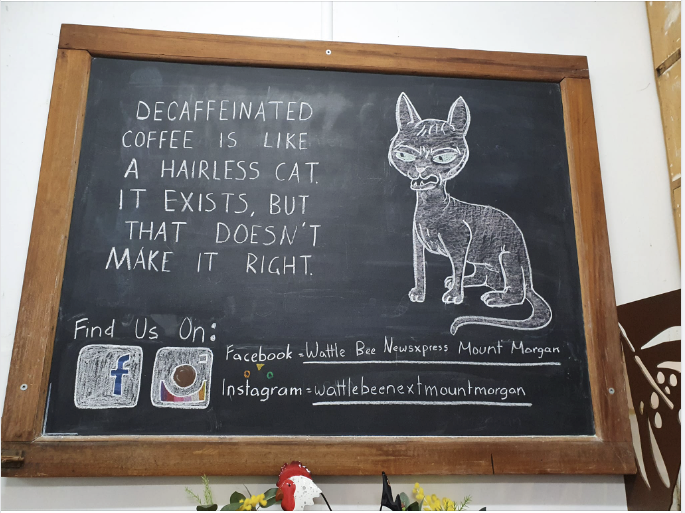 DECAFFEINATED
COFFEE IS LIKE
A HAIRLESS CAT.
IT EXISTS, BUT
THAT DOESN'T
MAKE IT RIGHT.
Find Us On:
f
Facebook = Wattle Bee Newsxpress Mount Morgan
Instagram = wattlebeenextmountmorgan